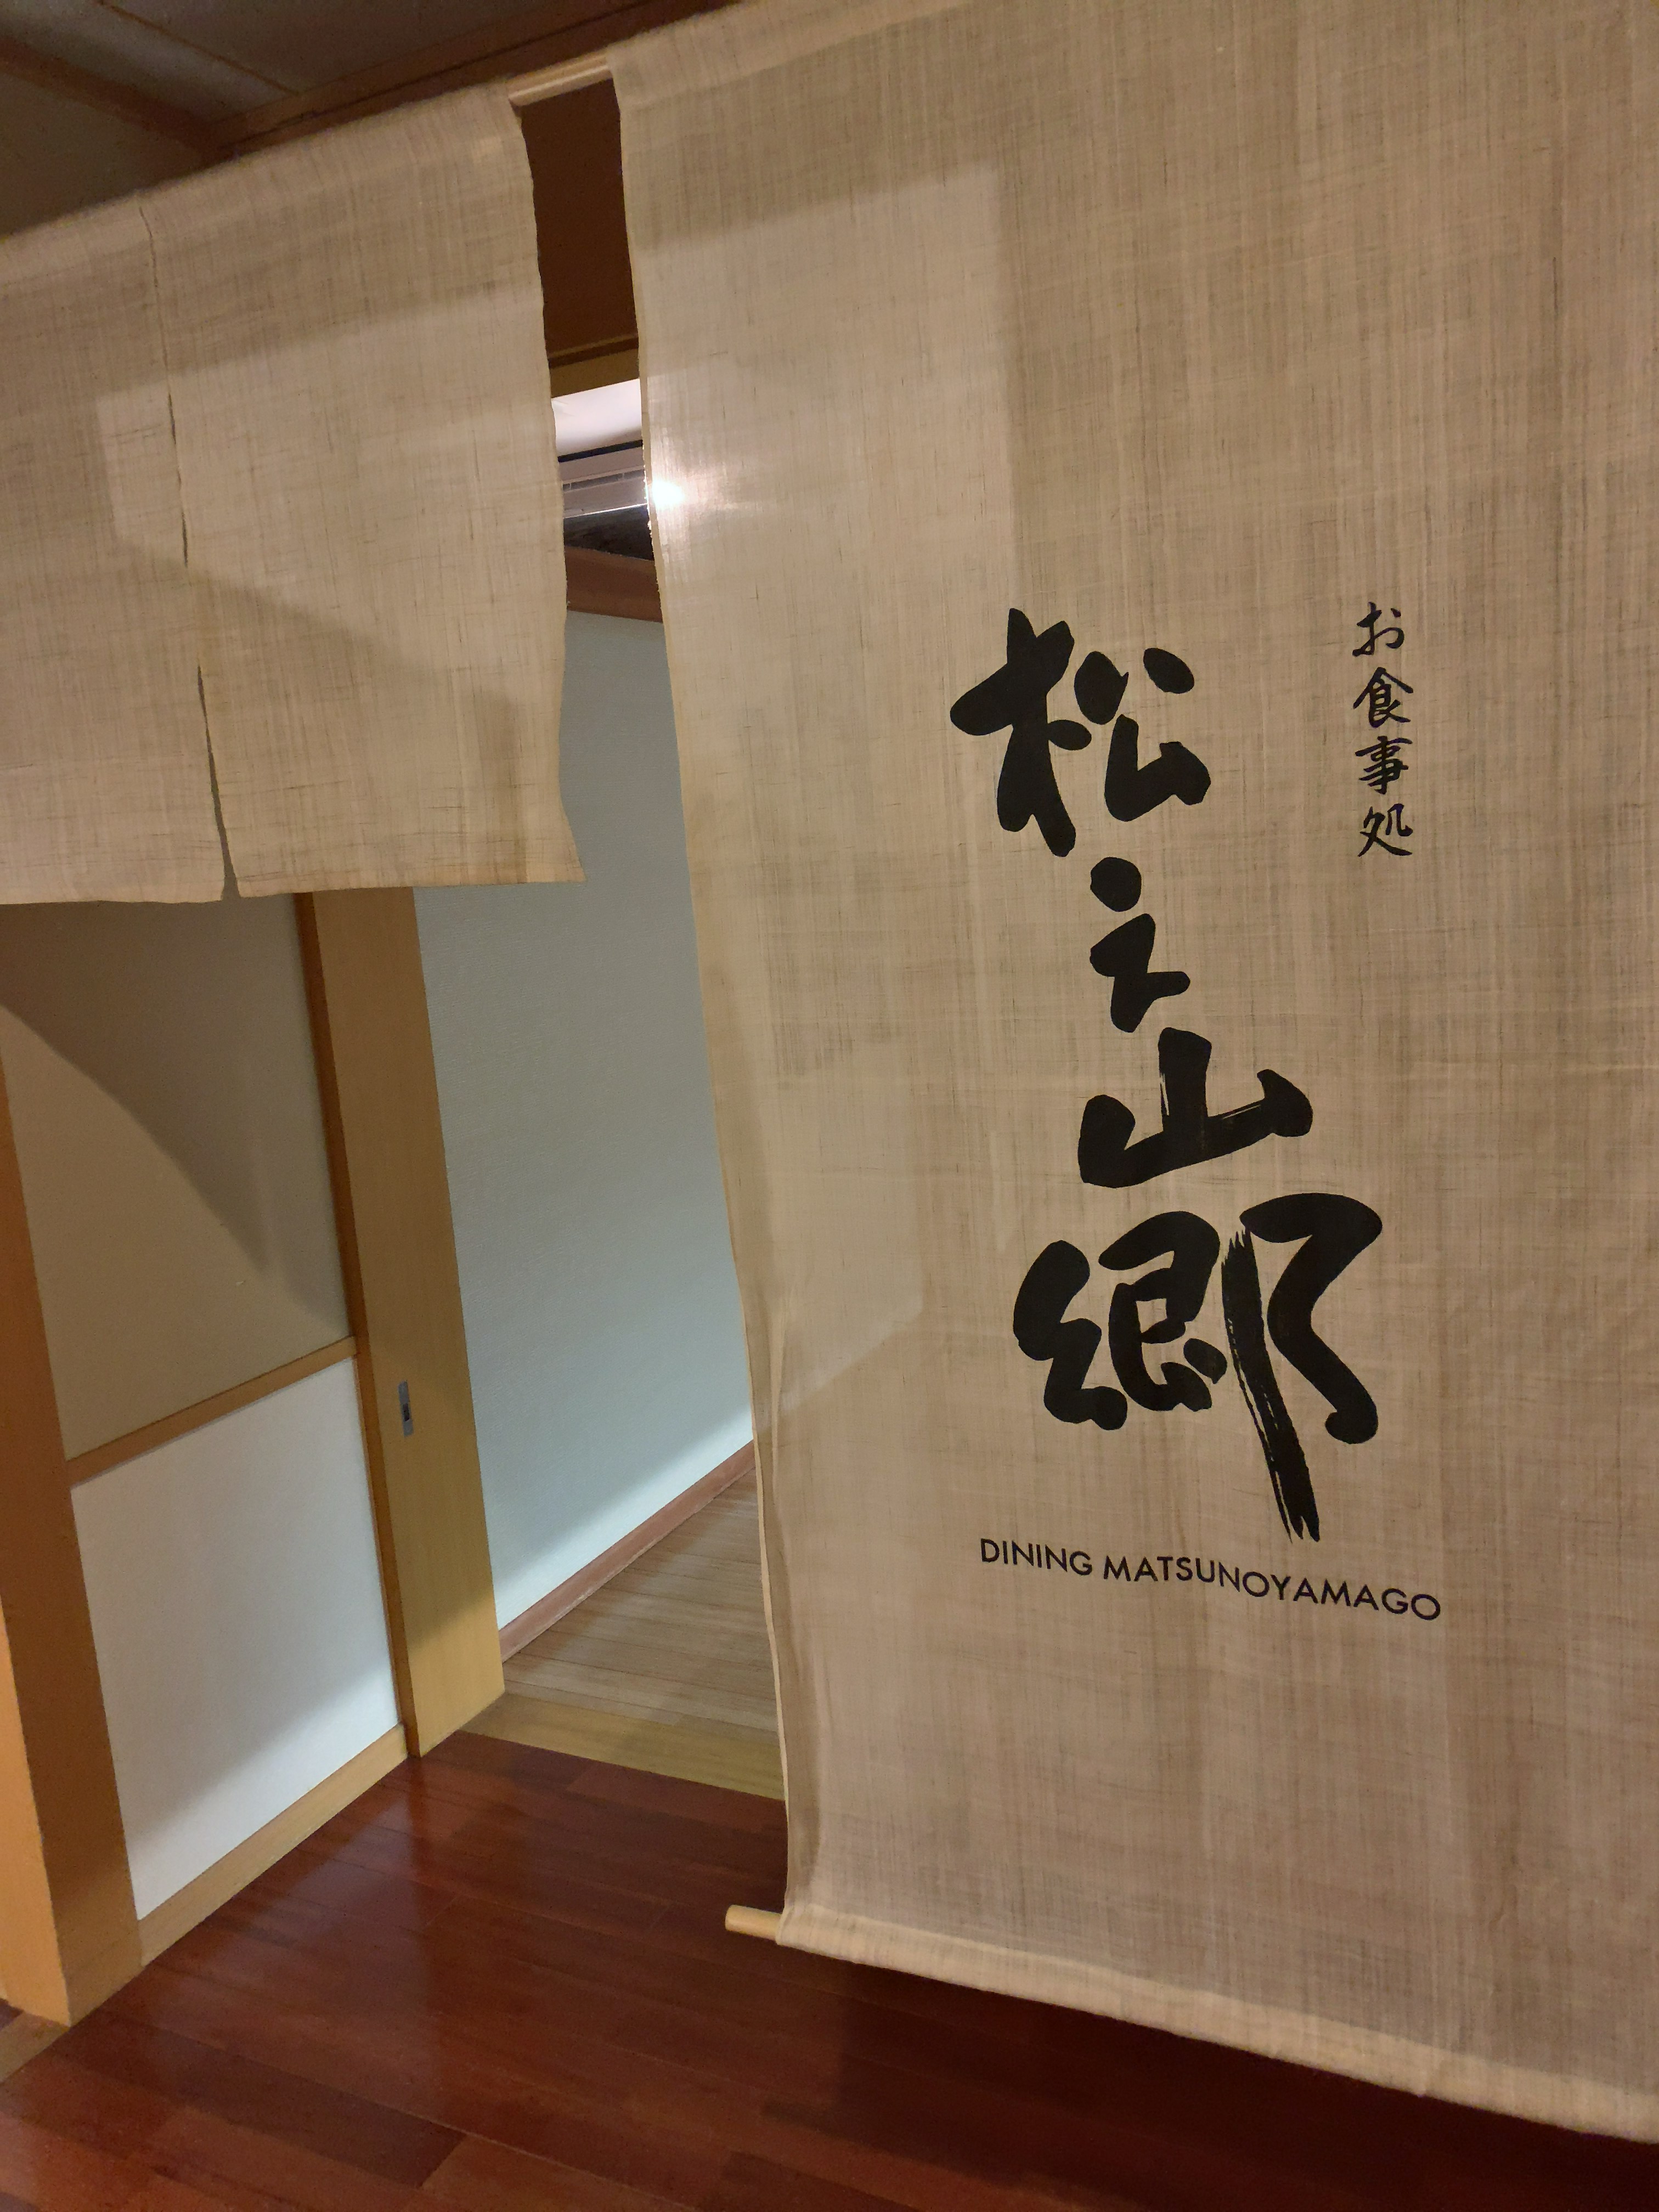 お食事処
松之山郷
DINING MATSUNOYAMAGO